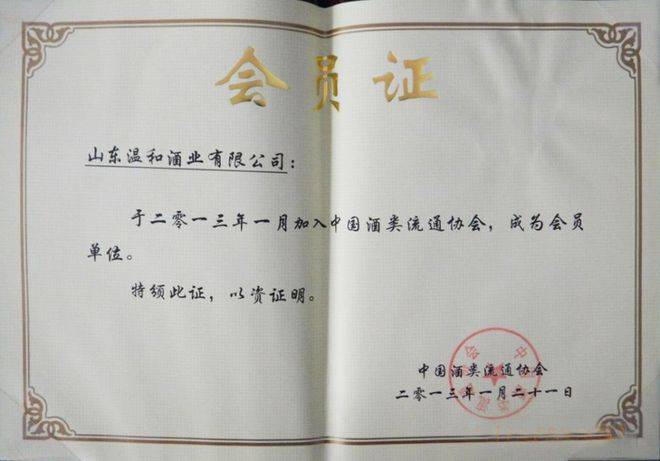 会员证
山东温和酒业有限公司：
于二零一三年一月加入中国酒类流通协会，成为会员
单位。
特颁此证，以资证明。
中国酒类流通协会
二零一三年一月二十一日